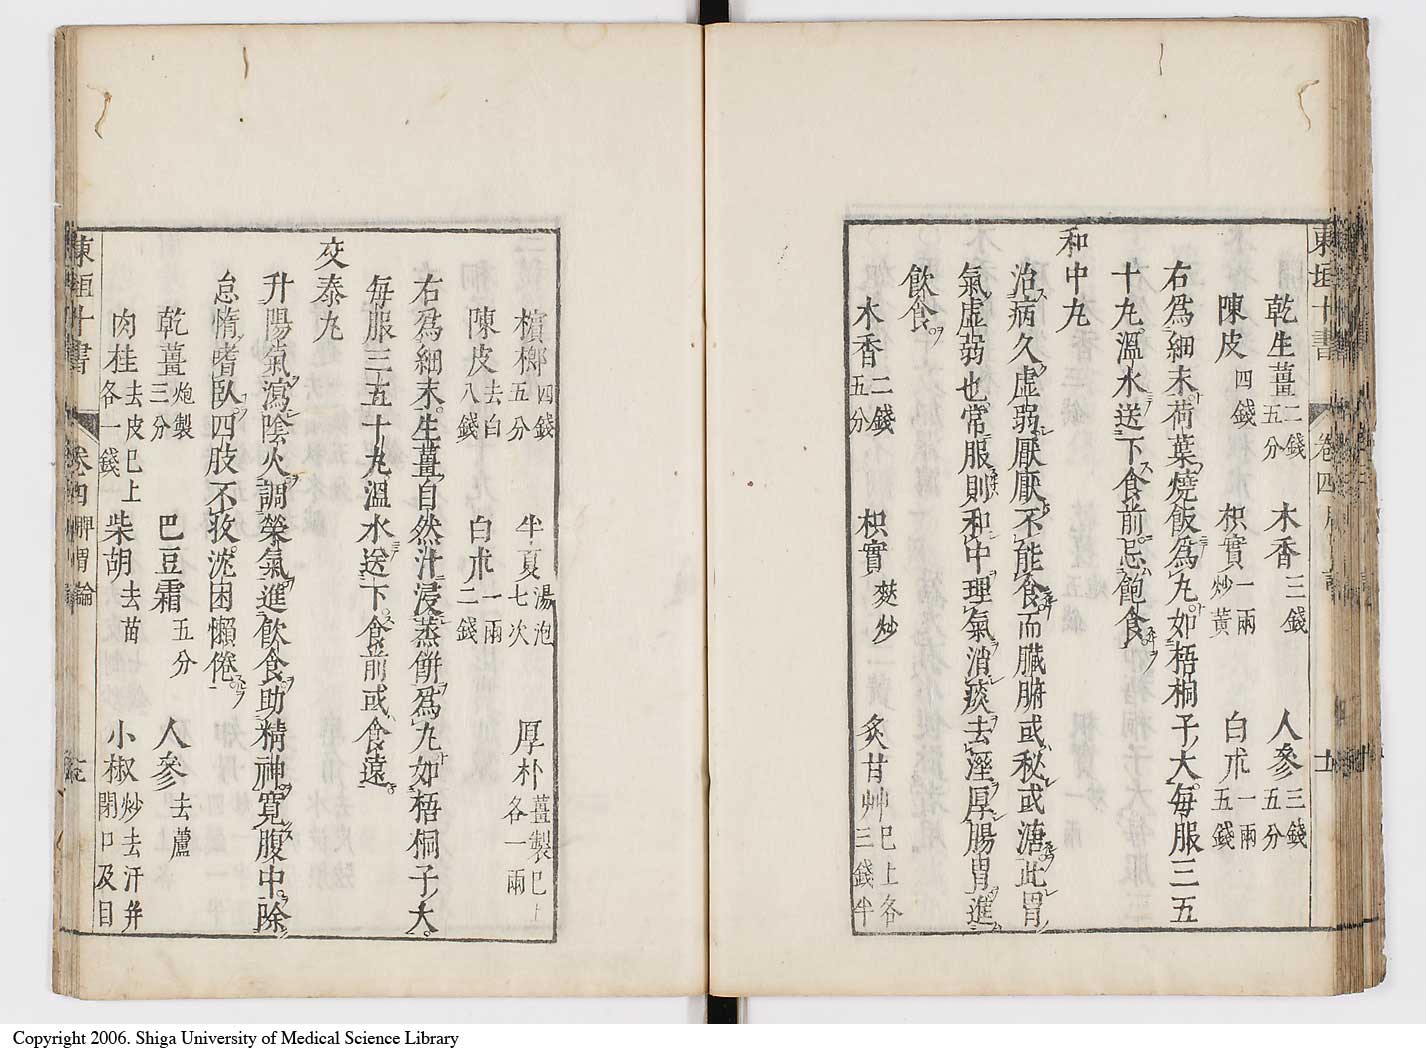 東垣十書
卷四
十
乾生薑二錢五分 木香三錢 人參三錢五分
陳皮四錢 枳實一兩炒黃 白朮一兩五錢
右爲細末荷葉燒飯爲丸如梧桐子大每服三五
十丸溫水送下食前忌飽食
和中丸
治病久虛弱厭厭不能食而臟腑或秘或溏此胃
氣虛弱也常服則和中理氣消痰去溼厚腸胃進
飲食
木香二錢五分 枳實麩炒 炙甘艸三錢半已上各
檳榔四錢五分 半夏湯泡七次 厚朴薑製已上各一兩
陳皮去白八錢 白朮一兩二錢
右爲細末生薑自然汁浸蒸餅爲丸如梧桐子大
每服三五十丸溫水送下食前或食遠
交泰丸
升陽氣瀉陰火調榮氣進飲食助精神寬腹中除
怠惰嗜臥四肢不收沈困懶倦
乾薑炮製三分 巴豆霜五分 人參去蘆
肉桂去皮已上各一錢 柴胡去苗 小椒炒去汗幷閉口及目
東垣十書
卷四 脾胃論
Copyright 2006. Shiga University of Medical Science Library